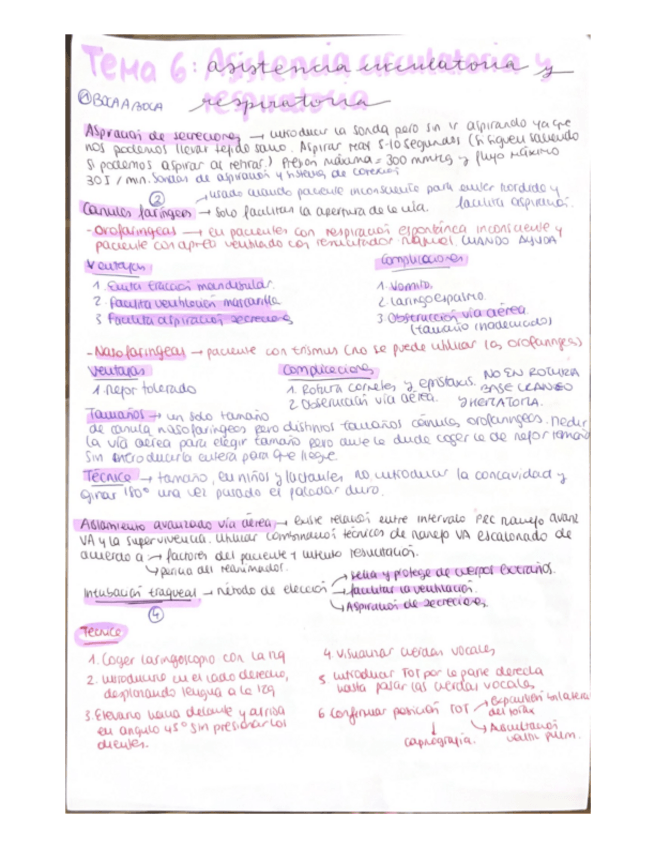 Tema 6: Asistencia circulatoria y
respiratoria
① BOCA A BOCA
Aspiración de secreciones → introducir la sonda pero sin ir aspirando ya que
nos podemos llevar tejido sano. Aspirar max 5-10 segundos (si siguen saliendo
si podemos aspirar al retirar). Presión máxima = 300 mmHg y flujo máximo
30 l / min. Sondas de aspiración y sistema de conexión
② → usado cuando paciente inconsciente para evitar mordida y
facilita aspiración.
Cánulas faríngeas → solo facilitan la apertura de la vía.
- Orofaríngeas → en pacientes con respiración espontánea inconsciente y
paciente con apnea ventilado con resucitador manual. CUANDO AYUDA
Ventajas
1. Evita tracción mandibular.
2. Facilita ventilación mascarilla
3 Facilita aspiración secreciones
Complicaciones
1. Vómito.
2. Laringoespasmo.
3. Obstrucción vía aérea
(tamaño inadecuado)
- Nasofaríngeas → paciente con trismus (no se puede utilizar las orofaríngeas)
Ventajas
1. Mejor tolerado
Complicaciones
1. Rotura cornetes y epistaxis.
2 Obstrucción vía aérea.
NO EN ROTURA
BASE CRANEO
Tamaños → un solo tamaño
de cánula nasofaríngeas pero distintos tamaños cánulas orofaríngeas. Medir
la vía aérea para elegir tamaño pero ante la duda coger la de mejor tamaño
sin introducirla entera para que llegue.
Técnica → tamaño, en niños y lactantes no introducir la concavidad y
girar 180° una vez pasado el paladar duro.
Aislamiento avanzado vía aérea → Existe relación entre intervalo PRC manejo avanz
VA y la supervivencia. Utilizar combinación técnicas de manejo VA escalonado de
acuerdo a: → factores del paciente + intento resucitación.
↳ pericia del reanimador.
Intubación traqueal → método de elección
→ sella y protege de cuerpos extraños.
→ facilitar la ventilación.
↳ Aspiración de secreciones.
④
Técnica
1. Coger laringoscopio con la izq
2. introducirlo en el lado derecho,
desplazando lengua a la izq
3. Elevarlo hacia delante y arriba
en angulo 45° sin presionar los
dientes.
4. Visualizar cuerdas vocales
5 introducir TOT por la parte derecha
hasta pasar las cuerdas vocales
6 Confirmar posición TOT → Expansión bilateral
del tórax
↳ Auscultación
ventil pulm.
↓
capnografía.